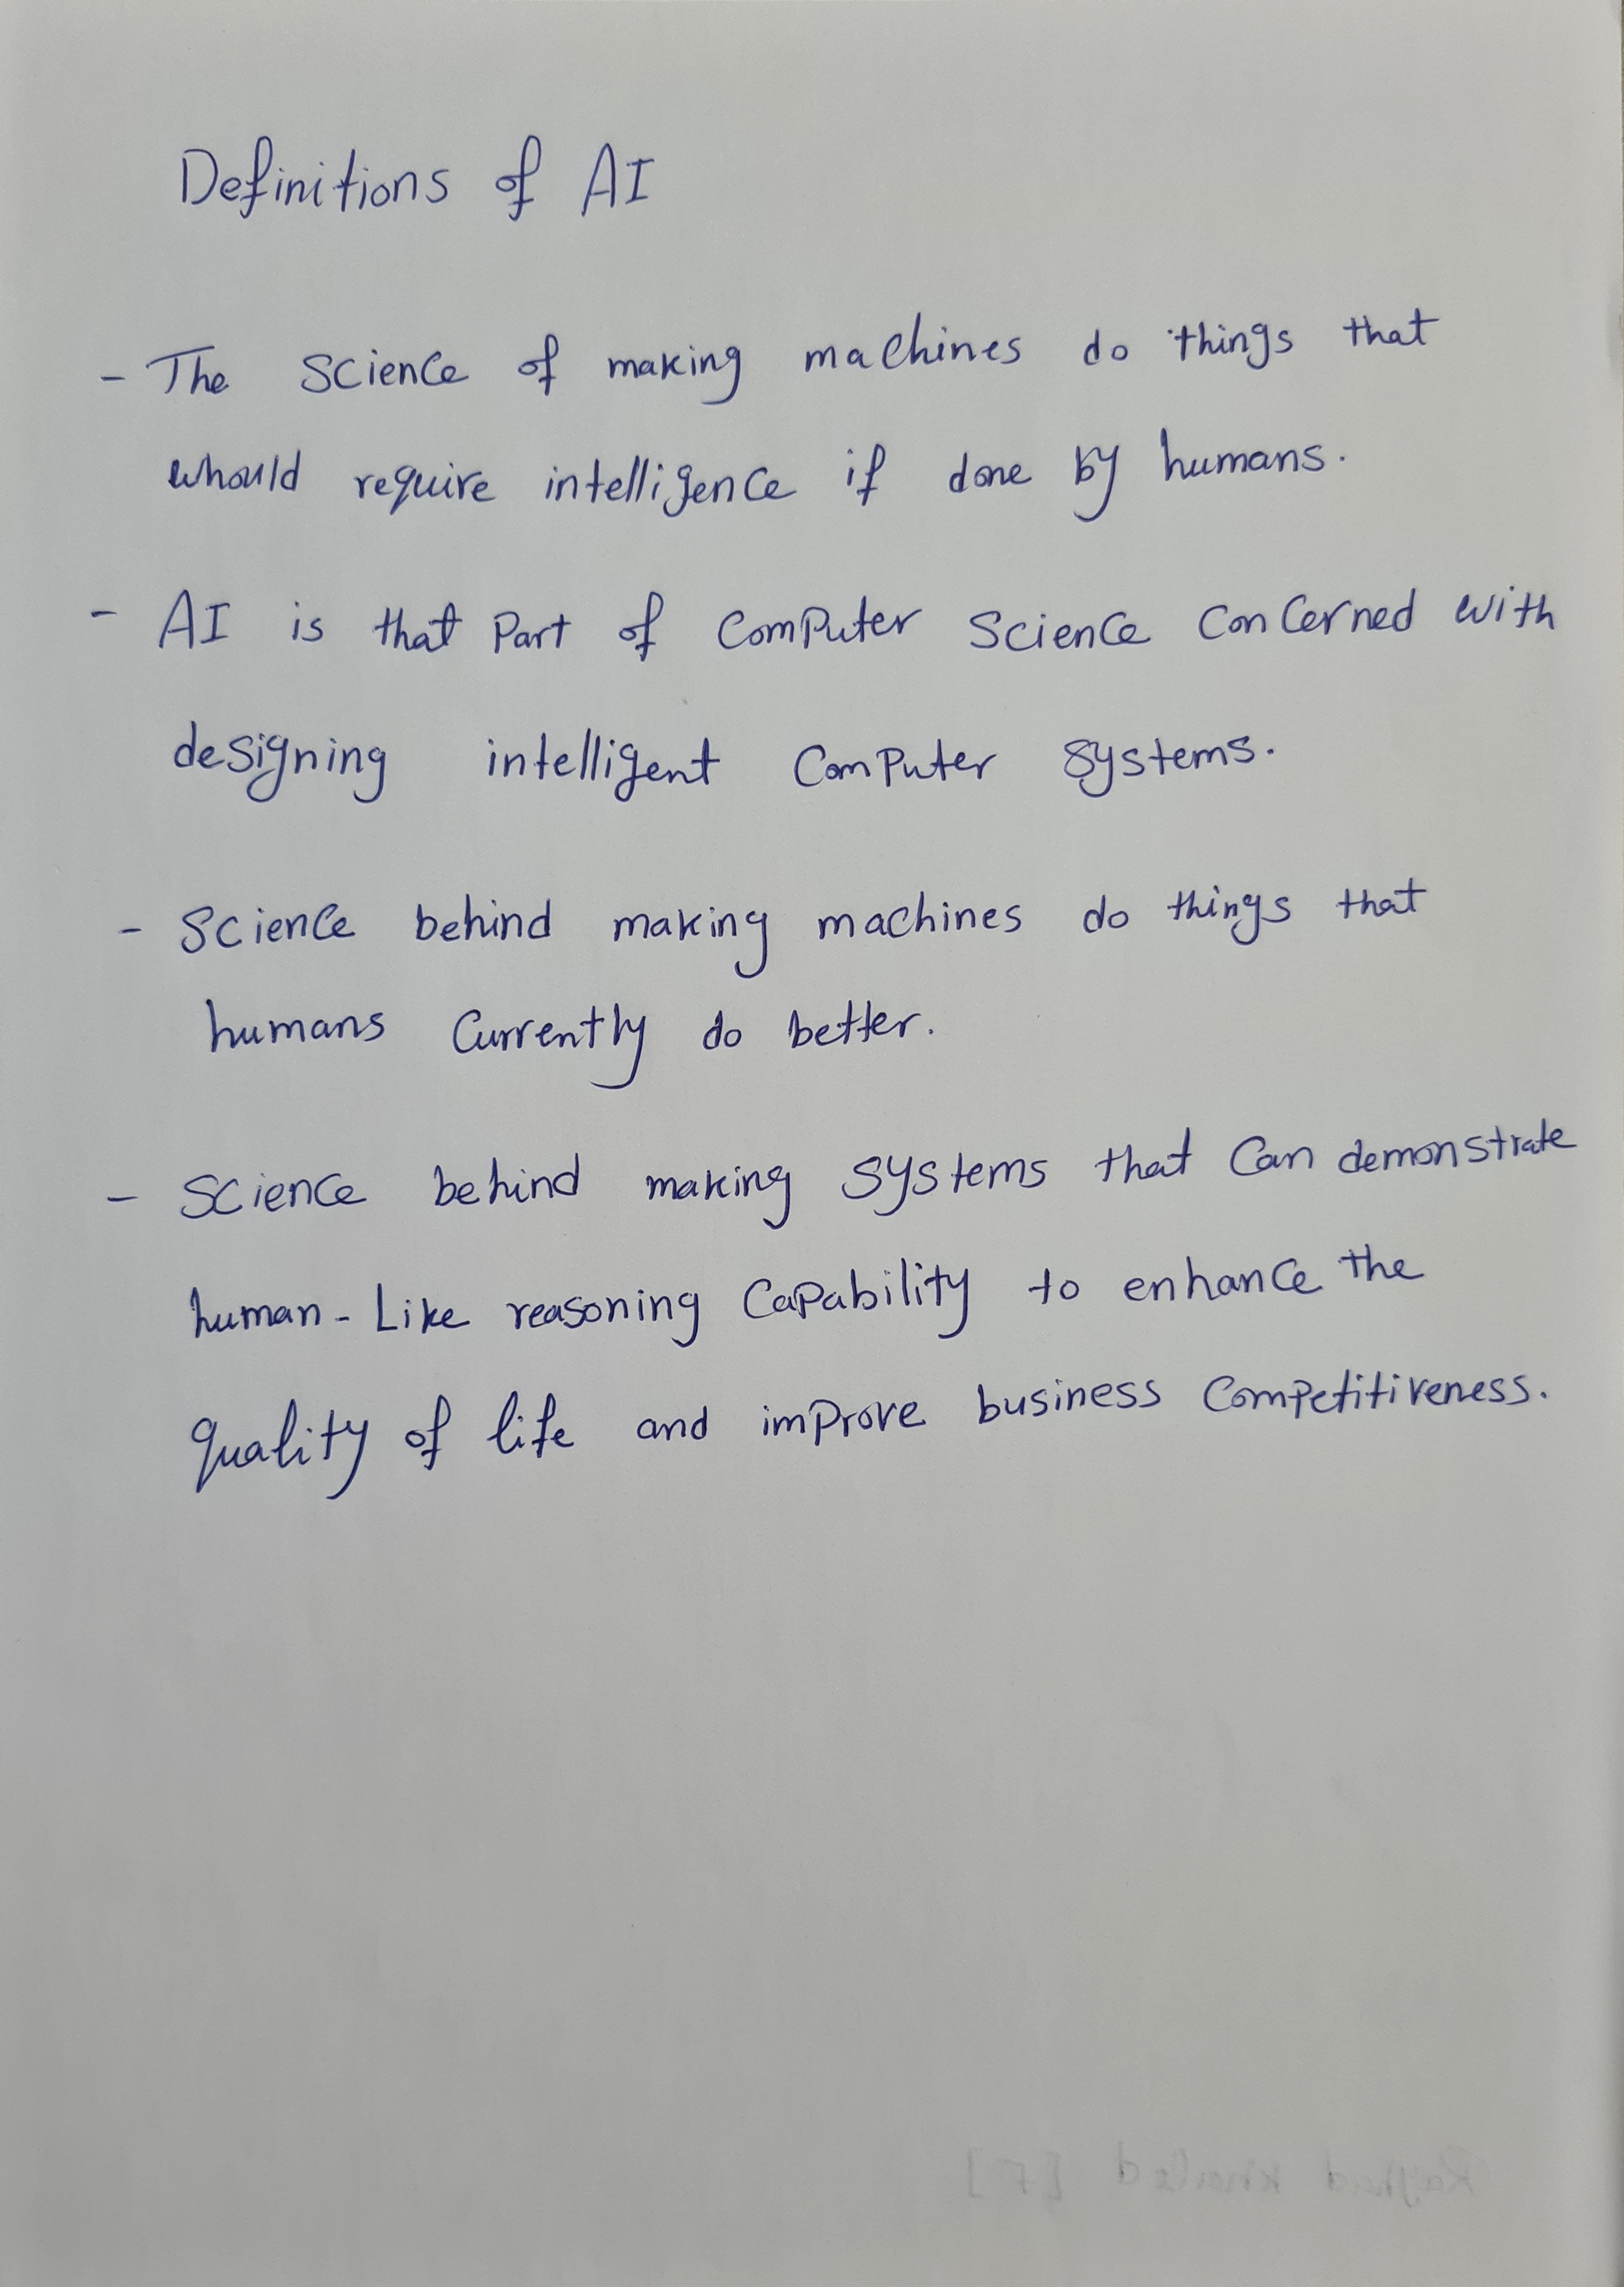 Definitions of AI
- The science of making machines do things that
whould require intelligence if done by humans.
- AI is that Part of ComPuter Science Concerned with
designing intelligent ComPuter Systems.
- Science behind making machines do things that
humans Currently do better.
- Science behind making Systems that Can demonstrate
human-Like reasoning CaPability to enhance the
quality of life and imProve business ComPetitiveness.